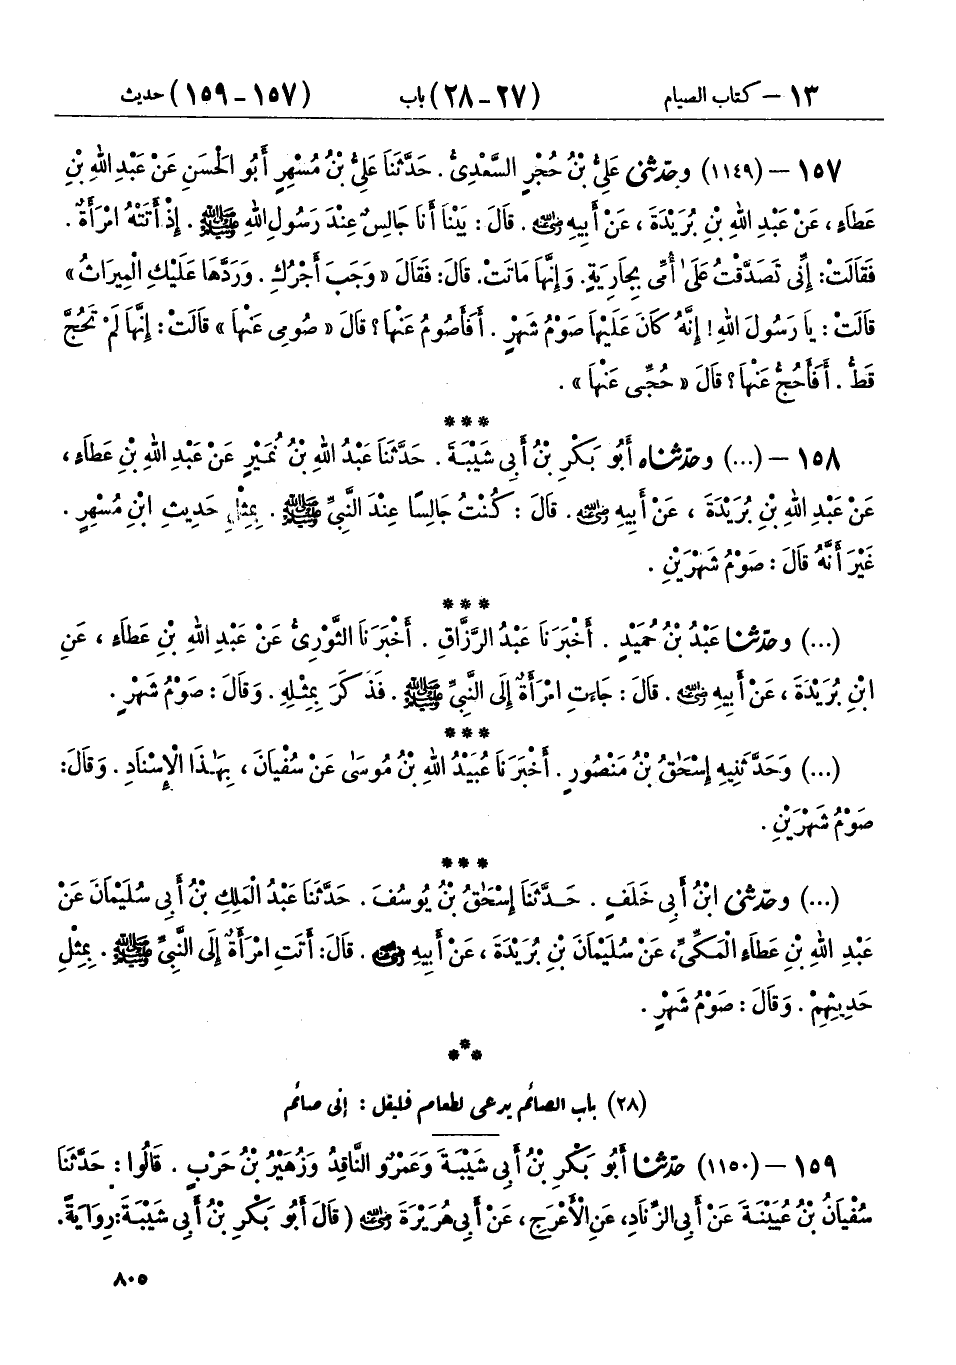 ١٣ – كتاب الصيام (٢٧-٢٨) باب (١٥٧-١٥٩) حديث
١٥٧ – (١١٤٩) وحَدَّثَنِي عَلِيُّ بْنُ حُجْرٍ السَّعْدِيُّ . حَدَّثَنَا عَلِيُّ بْنُ مُسْهِرٍ أَبُو الْحَسَنِ عَنْ عَبْدِ اللهِ بْنِ
عَطَاءٍ ، عَنْ عَبْدِ اللهِ بْنِ بُرَيْدَةَ ، عَنْ أَبِيهِ رضي الله عنه . قَالَ : بَيْنَا أَنَا جَالِسٌ عِنْدَ رَسُولِ اللهِ ﷺ . إِذْ أَتَتْهُ امْرَأَةٌ .
فَقَالَتْ: إِنِّي تَصَدَّقْتُ عَلَىٰ أُمِّي بِجَارِيَةٍ. وَإِنَّهَا مَاتَتْ. قَالَ: فَقَالَ « وَجَبَ أَجْرُكِ. وَرَدَّهَا عَلَيْكِ الْمِيرَاثُ »
قَالَتْ : يَا رَسُولَ اللهِ ! إِنَّهُ كَانَ عَلَيْهَا صَوْمُ شَهْرٍ . أَفَأَصُومُ عَنْهَا ؟ قَالَ « صُومِي عَنْهَا » قَالَتْ : إِنَّهَا لَمْ تَحُجَّ
قَطُّ . أَفَأَحُجُّ عَنْهَا ؟ قَالَ « حُجِّي عَنْهَا » .
***
١٥٨ – (...) وحَدَّثَنَاه أَبُو بَكْرِ بْنُ أَبِي شَيْبَةَ . حَدَّثَنَا عَبْدُ اللهِ بْنُ نُمَيْرٍ عَنْ عَبْدِ اللهِ بْنِ عَطَاءٍ ،
عَنْ عَبْدِ اللهِ بْنِ بُرَيْدَةَ ، عَنْ أَبِيهِ رضي الله عنه . قَالَ : كُنْتُ جَالِسًا عِنْدَ النَّبِيِّ ﷺ . بِمِثْلِ حَدِيثِ ابْنِ مُسْهِرٍ .
غَيْرَ أَنَّهُ قَالَ : صَوْمُ شَهْرَيْنِ .
***
(...) وحَدَّثَنَا عَبْدُ بْنُ حُمَيْدٍ . أَخْبَرَنَا عَبْدُ الرَّزَّاقِ . أَخْبَرَنَا الثَّوْرِيُّ عَنْ عَبْدِ اللهِ بْنِ عَطَاءٍ ، عَنِ
ابْنِ بُرَيْدَةَ ، عَنْ أَبِيهِ رضي الله عنه . قَالَ : جَاءَتِ امْرَأَةٌ إِلَى النَّبِيِّ ﷺ . فَذَكَرَ بِمِثْلِهِ . وَقَالَ : صَوْمُ شَهْرٍ .
***
(...) وَحَدَّثَنِيهِ إِسْحٰقُ بْنُ مَنْصُورٍ . أَخْبَرَنَا عُبَيْدُ اللهِ بْنُ مُوسَىٰ عَنْ سُفْيَانَ ، بِهٰذَا الْإِسْنَادِ . وَقَالَ:
صَوْمُ شَهْرَيْنِ .
***
(...) وحَدَّثَنِي ابْنُ أَبِي خَلَفٍ . حَدَّثَنَا إِسْحٰقُ بْنُ يُوسُفَ . حَدَّثَنَا عَبْدُ الْمَلِكِ بْنُ أَبِي سُلَيْمَانَ عَنْ
عَبْدِ اللهِ بْنِ عَطَاءٍ الْمَكِّيِّ، عَنْ سُلَيْمَانَ بْنِ بُرَيْدَةَ ، عَنْ أَبِيهِ رضي الله عنه . قَالَ: أَتَتِ امْرَأَةٌ إِلَى النَّبِيِّ ﷺ . بِمِثْلِ
حَدِيثِهِمْ . وَقَالَ : صَوْمُ شَهْرٍ .
***
(٢٨) باب الصائم يدعى لطعام فليقل : إنى صائم
١٥٩ – (١١٥٠) حَدَّثَنَا أَبُو بَكْرِ بْنُ أَبِي شَيْبَةَ وَعَمْرٌو النَّاقِدُ وَزُهَيْرُ بْنُ حَرْبٍ . قَالُوا : حَدَّثَنَا
سُفْيَانُ بْنُ عُيَيْنَةَ عَنْ أَبِي الزِّنَادِ، عَنِ الْأَعْرَجِ ، عَنْ أَبِي هُرَيْرَةَ رضي الله عنه ( قَالَ أَبُو بَكْرِ بْنُ أَبِي شَيْبَةَ: رِوَايَةً.
٨٠٥